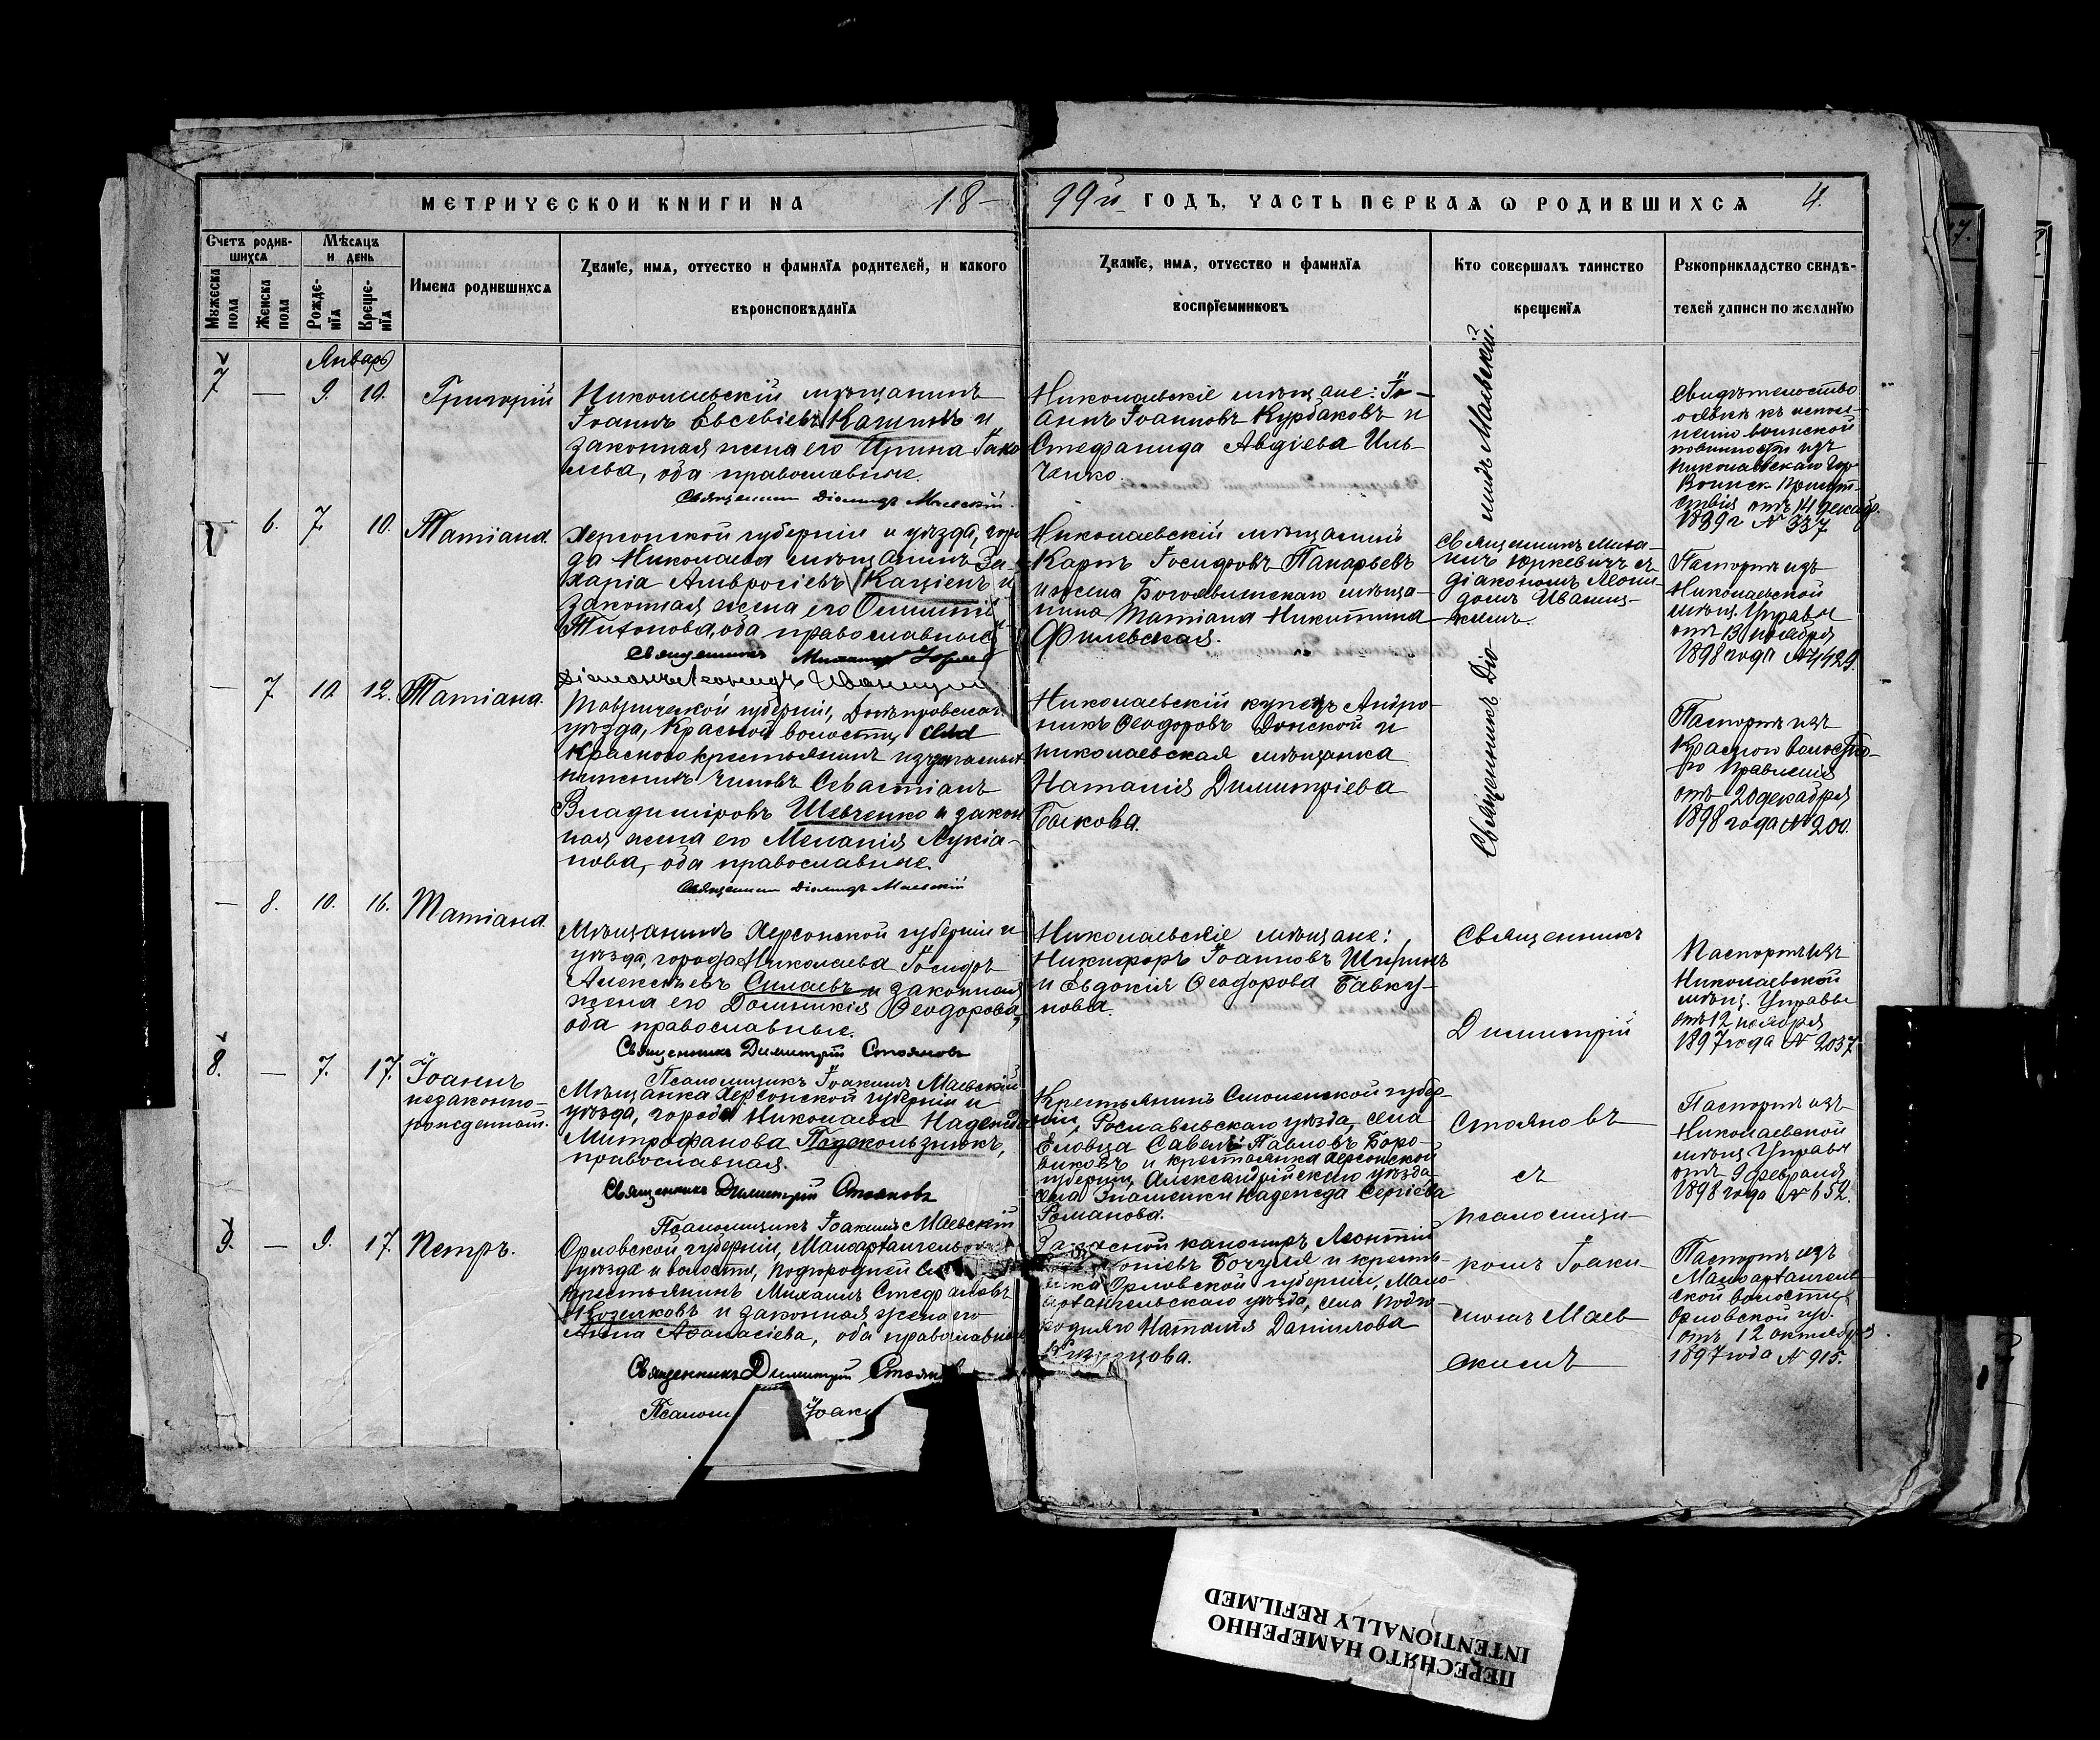 МЕТРИЧЕСКОЙ КНИГИ НА 18–
99й ГОДЪ, ЧАСТЬ ПЕРВАЯ Ѡ РОДИВШИХСЯ 4.
Счетъ родив-
шихся
Мужеска
пола
Женска
пола
Мѣсяцъ
и день
Рожде-
нїя
Креще-
нїя
Имена родившихся
Званїе, имя, отчество и фамилїя родителей, и какого
вѣроисповѣданїя
Званїе, имя, отчество и фамилїя
воспрїемниковъ
Кто совершалъ таинство
крещенїя
Рукоприкладство свидѣ-
телей записи по желанїю
Январь
7 — 9. 10. Григорій
Николаевскій мѣщанинъ
Іоаннъ Евсевіевъ и
законная жена его Ирина Іако
влева, оба православные.
Священникъ Діомидъ Маевскій.
Николаевскіе мѣщане: Іо-
аннъ Іоанновъ Курбаковъ и
Стефанида Авдіева Иль-
ченко.
Священникъ Діо
мидъ Маевскій.
Свидѣтельство
о явкѣ къ испол-
ненію воинской
повинности изъ
Николаевскаго Гор.
Воинск. Присут-
ствія отъ 14 декабр.
№ 337
— 6. 7. 10. Татіана.
Херсонской губерніи и уѣзда, горо
да Николаева мѣщанинъ За
харія Амвросіевъ и
законная жена его
Тихонова, оба православные
Священникъ Михаилъ
Діаконъ Леонидъ Иваницкій
Николаевскій мѣщанинъ
Карпъ Іосифовъ Панарьевъ
и жена Богоявленскаго мѣща-
нина Татіана Никитина
Филевская.
Священникъ Миха-
илъ Юркевичъ съ
діакономъ Леони-
домъ Иваниц-
кимъ.
Паспортъ изъ
Николаевской
мѣщ. Управы
отъ 13 ноября
1898 года № 4429.
— 7. 10. 12. Татіана.
Таврической губерніи, Днѣпровскаго
уѣзда, Красной волости, села
Краснаго крестьянинъ изъ запасныхъ
нижнихъ чиновъ Севастіанъ
Владиміровъ Шевченко и закон
ная жена его Меланія Лукіа-
нова, оба православные.
Священникъ Діомидъ Маевскій
Николаевскій купецъ Андро-
никъ Ѳеодоровъ Донской и
николаевская мѣщанка
Наталія Димитріева
Быкова.
Паспортъ изъ
Красною Волостно-
го Правленія
отъ 20 декабря
1898 года № 200.
— 8. 10. 16. Татіана.
Мѣщанинъ Херсонской губерніи и
уѣзда, города Николаева Іосифъ
Алексѣевъ Силаевъ и законная
жена его Домникія Ѳеодорова,
оба православные.
Священникъ Димитрій Стояновъ
Псаломщикъ Іоакимъ Маевскій
Николаевскіе мѣщане:
Никифоръ Іоанновъ Ширинъ
и Евдокія Ѳеодорова Бавку-
нова.
Священникъ
Димитрій
Стояновъ
съ
псаломщи-
комъ Іоаки
момъ Маев
скимъ
Паспортъ изъ
Николаевской
мѣщ. Управы
отъ 12 ноября
1897 года № 2037.
8. — 7. 17. Іоаннъ
незаконно-
рожденный.
Мѣщанка Херсонской губерніи и
уѣзда, города Николаева Надежда
Митрофанова
православная.
Священникъ Димитрій Стояновъ
Псаломщикъ Іоакимъ Маевскій
Крестьянинъ Смоленской губер-
ніи, Рославльскаго уѣзда, села
Еловца Савелъ Павловъ Боро-
виковъ и крестьянка Херсонской
губерніи, Александрійскаго уѣзда
села Знаменки Надежда Сергіева
Романова.
Паспортъ изъ
Николаевской
мѣщ. Управы
отъ 9 февраля
1898 года № 652.
9. — 9. 17. Петръ.
Орловской губерніи, Малоархангельскаго
уѣзда и волости, Подгородней
крестьянинъ Михаилъ Стефановъ
Козелковъ и законная жена его
Анна Аѳанасіева, оба православные
Священникъ Димитрій Стоянов
Псалом Іоаки
Запасной канониръ Леонтій
Бочуля и кресть-
янка Орловской губерніи, Мало-
архангельскаго уѣзда, села Подго-
родняго Наталія Даніилова
Паспортъ изъ
Малоархангель-
ской волости
Орловской гу.
отъ 12 октября
1897 года № 915.
ПЕРЕСНЯТО НАМЕРЕННО
INTENTIONALLY REFILMED